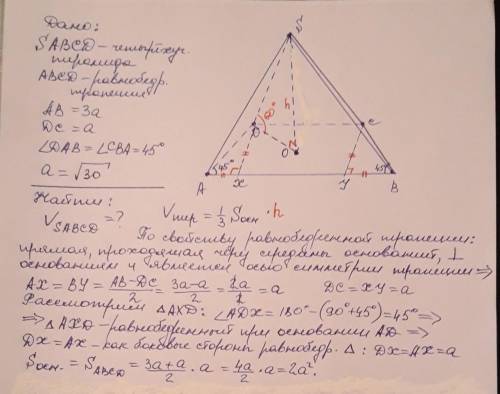 Дано:
SABCD – четырёхуг.
пирамида
ABCD – равнобедр.
трапеция
AB = 3a
DC = a
∠DAB = ∠CBA = 45°
a = √30
Найти:
V_SABCD = ?
S
h
90°
D
C
O
45°
45°
A
X
Y
B
Vпир = 1/3 Sосн · h
По свойству равнобедренной трапеции:
прямая, проходящая через середины оснований, ⊥
основаниям и является осью симметрии трапеции ⇒
AX = BY = (AB - DC)/2 = (3a - a)/2 = 2a/2 = a DC = XY = a
Рассмотрим △AXD: ∠ADX = 180° - (90° + 45°) = 45° ⇒
⇒ △AXD – равнобедренный при основании AD ⇒
DX = AX – как боковые стороны равнобедр. △ : DX = AX = a
Sосн. = S_ABCD = (3a + a)/2 · a = 4a/2 · a = 2a².